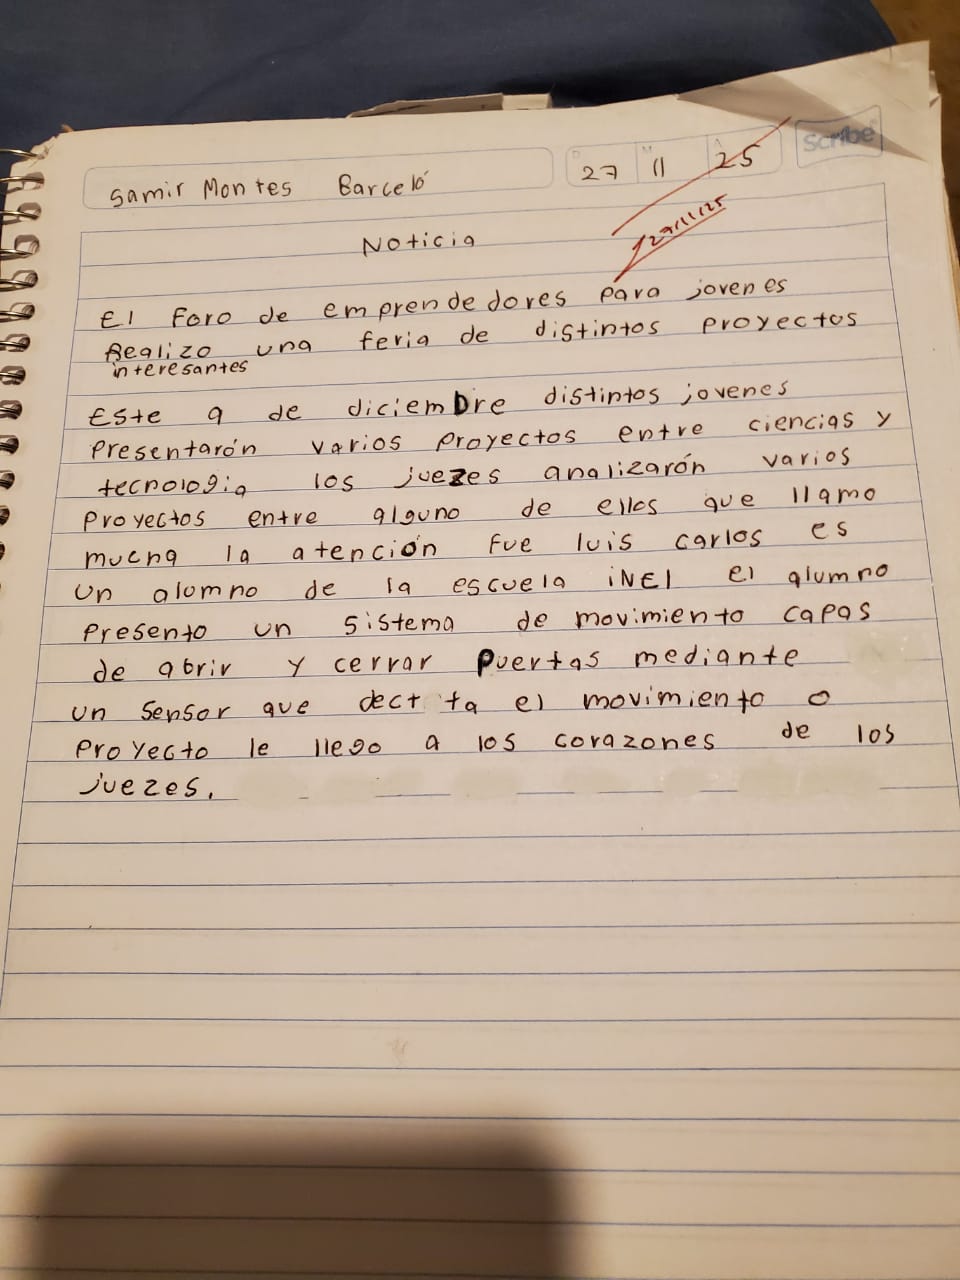 Scribe
D M A
27 11 25
Samir Montes Barceló
27/11/25
Noticia
El Foro de emprendedores para jovenes
Realizo una feria de distintos proyectos
interesantes
Este 9 de diciembre distintos jovenes
presentarón varios proyectos entre ciencias y
tecnologia los juezes analizarón varios
proyectos entre alguno de ellos que llamo
mucha la atención fue luis carlos es
un alumno de la escuela iNEI el alumno
presento un sistema de movimiento capas
de abrir y cerrar puertas mediante
un sensor que dect ta el movimiento o
proyecto le llego a los corazones de los
juezes.